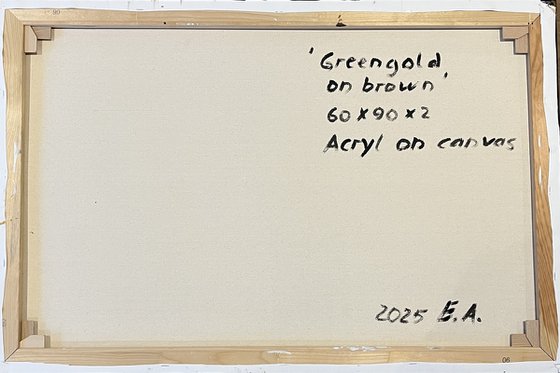 'Greengold
on brown'
60 x 90 x 2
Acryl on canvas
2025 E.A.
06